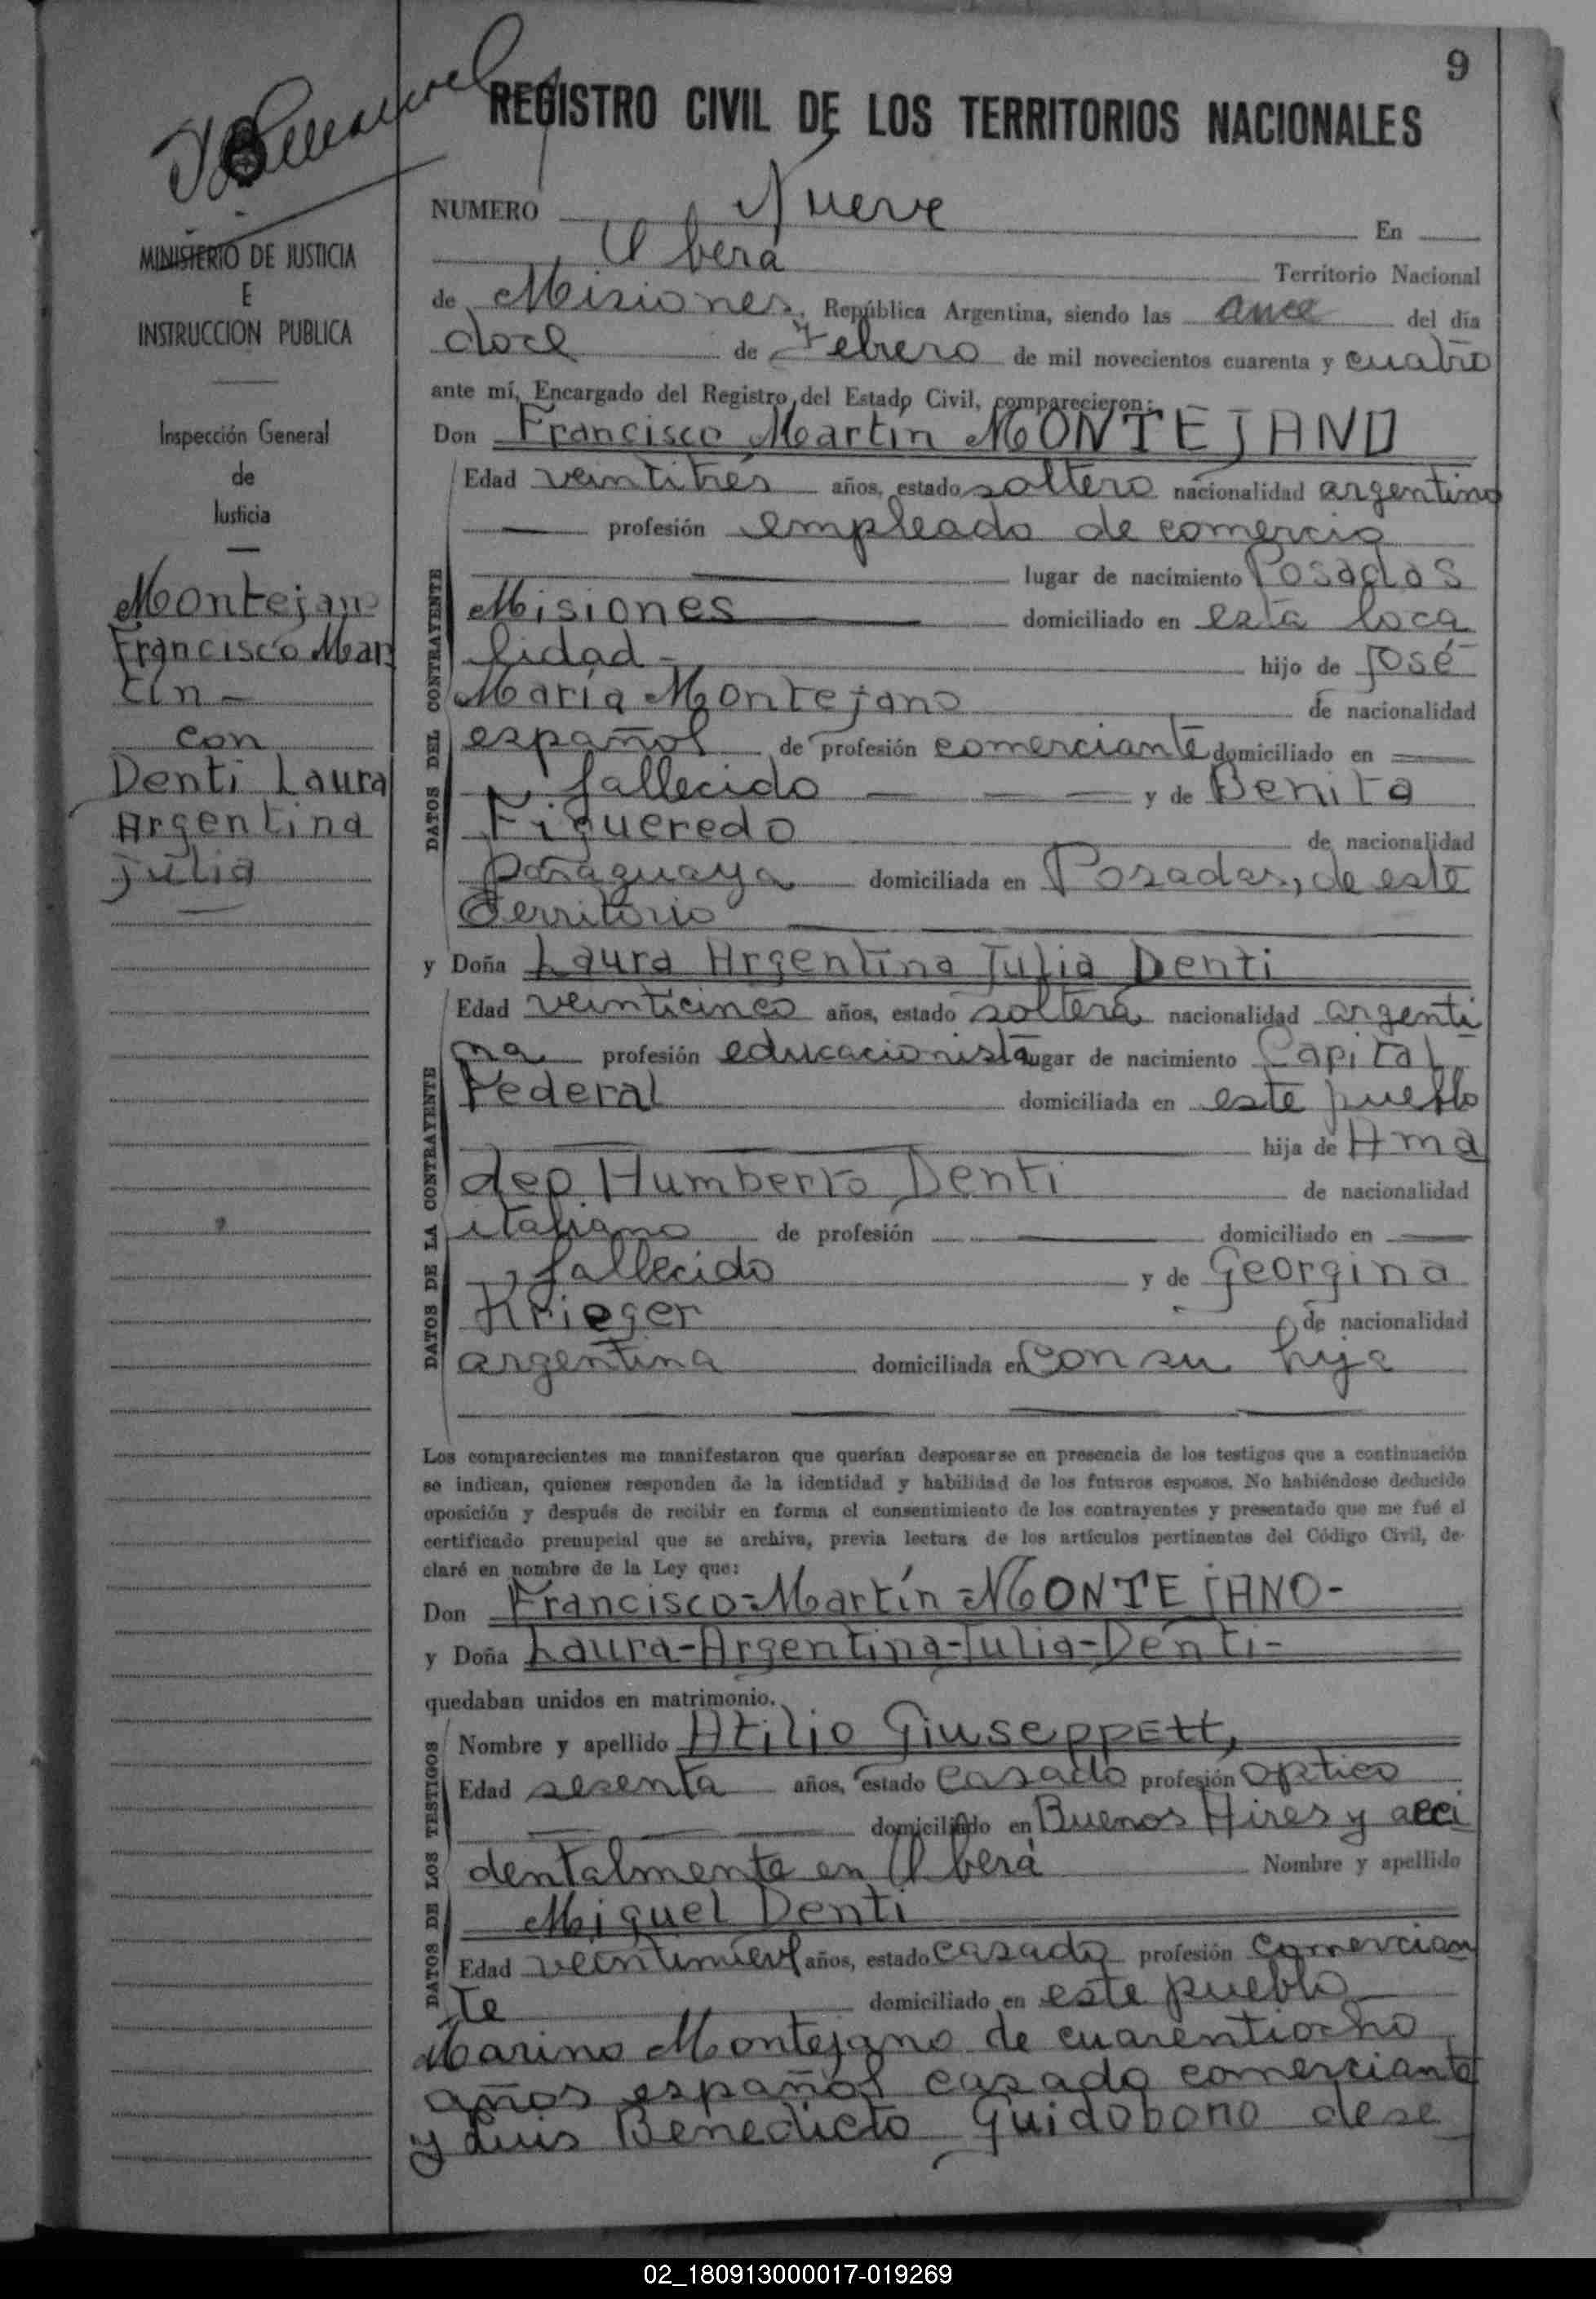 9
REGISTRO CIVIL DE LOS TERRITORIOS NACIONALES
MINISTERIO DE JUSTICIA
E
INSTRUCCION PUBLICA
Inspección General
de
Justicia
Montejano
Francisco Mar
tín -
con
Denti Laura
Argentina
Julia
NUMERO Nueve En
Oberá Territorio Nacional
de Misiones, República Argentina, siendo las once del día
doce de Febrero de mil novecientos cuarenta y cuatro
ante mí, Encargado del Registro del Estado Civil, comparecieron:
Don Francisco Martín MONTEJANO
DATOS DEL CONTRAYENTE
Edad veintitrés años, estado soltero nacionalidad argentino
profesión empleado de comercio
lugar de nacimiento Posadas
Misiones domiciliado en esta loca
lidad - hijo de José
María Montejano de nacionalidad
español de profesión comerciante domiciliado en
fallecido y de Benita
Figueredo de nacionalidad
paraguaya domiciliada en Posadas, de este
Territorio
y Doña Laura Argentina Julia Denti
DATOS DE LA CONTRAYENTE
Edad veinticinco años, estado soltera nacionalidad argenti
na profesión educacionista lugar de nacimiento Capital
Federal domiciliada en este pueblo
hija de Ama
deo Humberto Denti de nacionalidad
italiano de profesión domiciliado en
fallecido y de Georgina
Krieger de nacionalidad
argentina domiciliada en con su hija
Los comparecientes me manifestaron que querían desposarse en presencia de los testigos que a continuación
se indican, quienes responden de la identidad y habilidad de los futuros esposos. No habiéndose deducido
oposición y después de recibir en forma el consentimiento de los contrayentes y presentado que me fué el
certificado prenupcial que se archiva, previa lectura de los artículos pertinentes del Código Civil, de-
claré en nombre de la Ley que:
Don Francisco-Martín-MONTEJANO-
y Doña Laura-Argentina-Julia-Denti-
quedaban unidos en matrimonio.
DATOS DE LOS TESTIGOS
Nombre y apellido Atilio Giuseppetti
Edad sesenta años, estado casado profesión optico
domiciliado en Buenos Aires y acci
dentalmente en Oberá Nombre y apellido
Miguel Denti
Edad veintinueve años, estado casado profesión comercian
te domiciliado en este pueblo
Marino Montejano de cuarentiocho
años español casado comerciante
y Luis Benedicto Guidobono dese
02_180913000017-019269